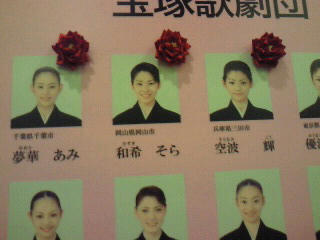 宝塚歌劇団
千葉県千葉市
岡山県岡山市
兵庫県三田市
夢華 あみ
和希 そら
空波 輝